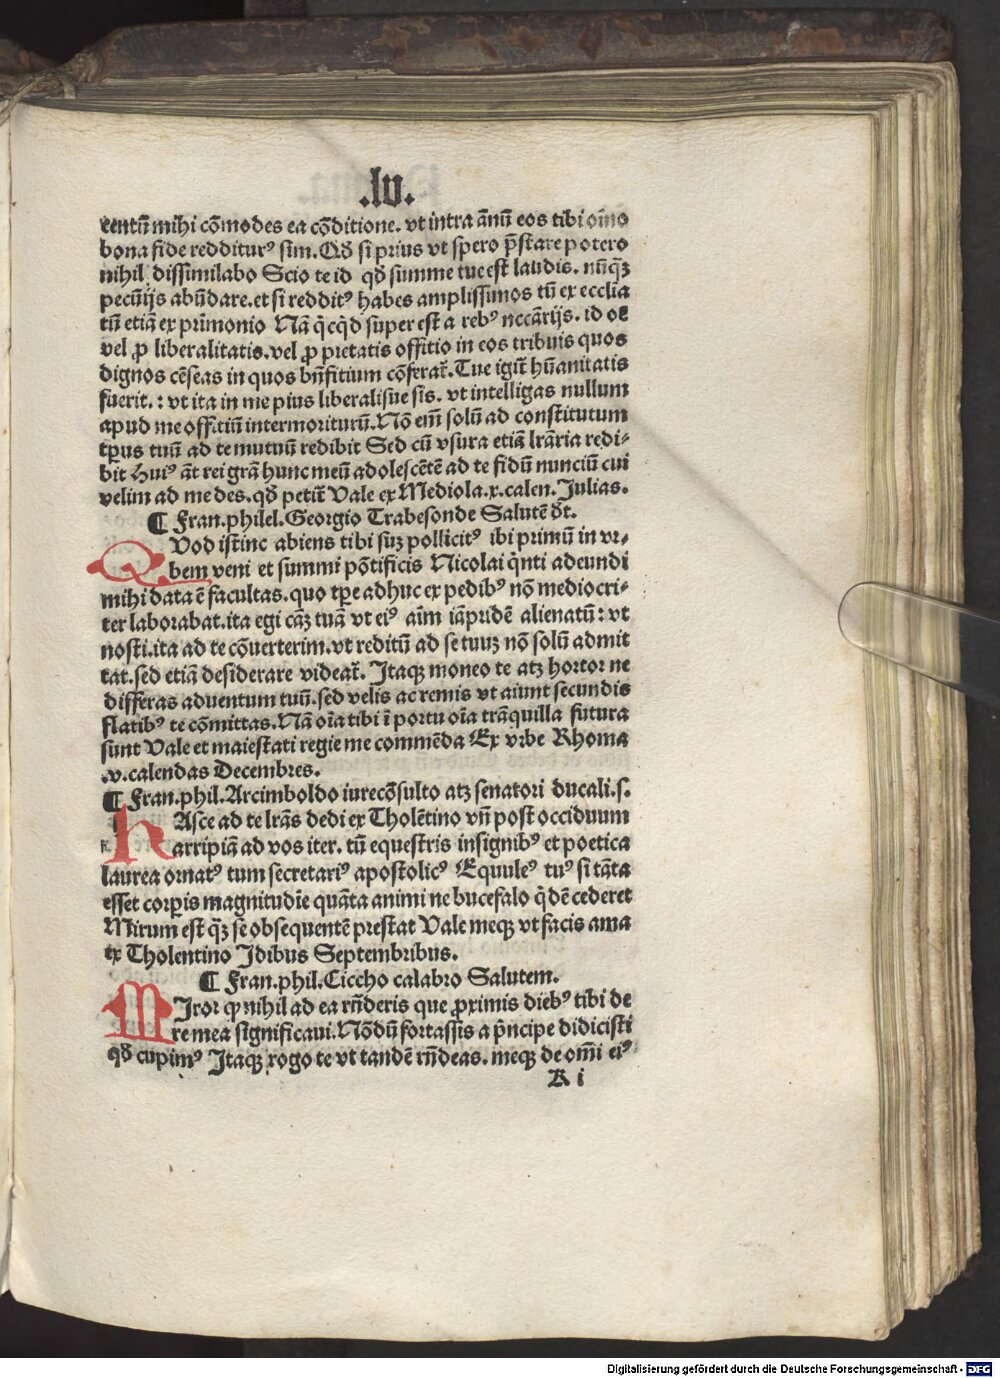 .lv.
centū mihi cōmodes ea cōditione. vt intra ānū eos tibi oīno
bona fide redditurꝰ sim. Qđ si prius vt spero p̄stare potero
nihil dissimilabo Scio te id qđ summe tue est laudis. nūqꝫ
pecūijs abūdare. et si redditꝰ habes amplissimos tū ex ecclia
tū etiā ex pr̄imonio Nā q̇cq̇d super est a rebꝰ nccārijs. id oē
vel ꝓ liberalitatis. vel ꝓ pietatis offitio in eos tribuis quos
dignos cēseas in quos bn̄fitium cōferat᷑. Tue igit᷑ hūanitatis
fuerit. : vt ita in me pius liberalisue sis. vt intelligas nullum
apud me offitiū intermoriturū. Nō em̄ solū ad constitutum
tp̄us tuū ad te mutuū redibit Sed cū vsura etiā lrāria redi-
bit Huiꝰ āt rei grā hunc meū adolescētē ad te fidū nunciū cui
velim ad me des. qđ petit᷑ Vale ex Mediola. x. calen. Julias.
¶ Fran. philel. Georgio Trabesonde Salutē đt.
QVod istinc abiens tibi suꝫ pollicitꝰ ibi primū in vr-
bem veni et summi pōtificis Nicolai q̇nti adeundi
mihi data ē facultas. quo tp̄e adhuc ex pedibꝰ nō mediocri-
ter laborabat. ita egi cāꝫ tuā vt eiꝰ aīm iāpridē alienatū: vt
nosti. ita ad te cōuerterim. vt reditū ad se tuuꝫ nō solū admit
tat. sed etiā desiderare videat᷑. Itaqꝫ moneo te atqꝫ hortor ne
differas aduentum tuū. sed velis ac remis vt aiunt secundis
flatibꝰ te cōmittas. Nā oīa tibi ī portu oīa trāquilla futura
sunt Vale et maiestati regie me commēda Ex vrbe Rhoma
.v. calendas Decembres.
¶ Fran. phil. Arcimboldo iurecōsulto atqꝫ senatori ducali. s.
HAsce ad te lrās dedi ex Tholētino vn̄ post occiduum
arripiā ad vos iter. tū equestris insignibꝰ et poetica
laurea ornatꝰ tum secretariꝰ apostolicꝰ Equuleꝰ tuꝰ si tāta
esset corp̄is magnitudīe quāta animi ne bucefalo q̇dē cederet
Mirum est qꝫ̄ se obsequentē prestat Vale meqꝫ vt facis ama
ex Tholentino Idibus Septembribus.
¶ Fran. phil. Ciccho calabro Salutem.
MIror ꝙ nihil ad ea rn̄deris que ꝓximis diebꝰ tibi de
re mea significaui. Nōdū fortassis a p̄ncipe didicisti
qđ cupimꝰ Itaqꝫ rogo te vt tandē rn̄deas. meqꝫ de om̄i eiꝰ
K i
Digitalisierung gefördert durch die Deutsche Forschungsgemeinschaft - DFG